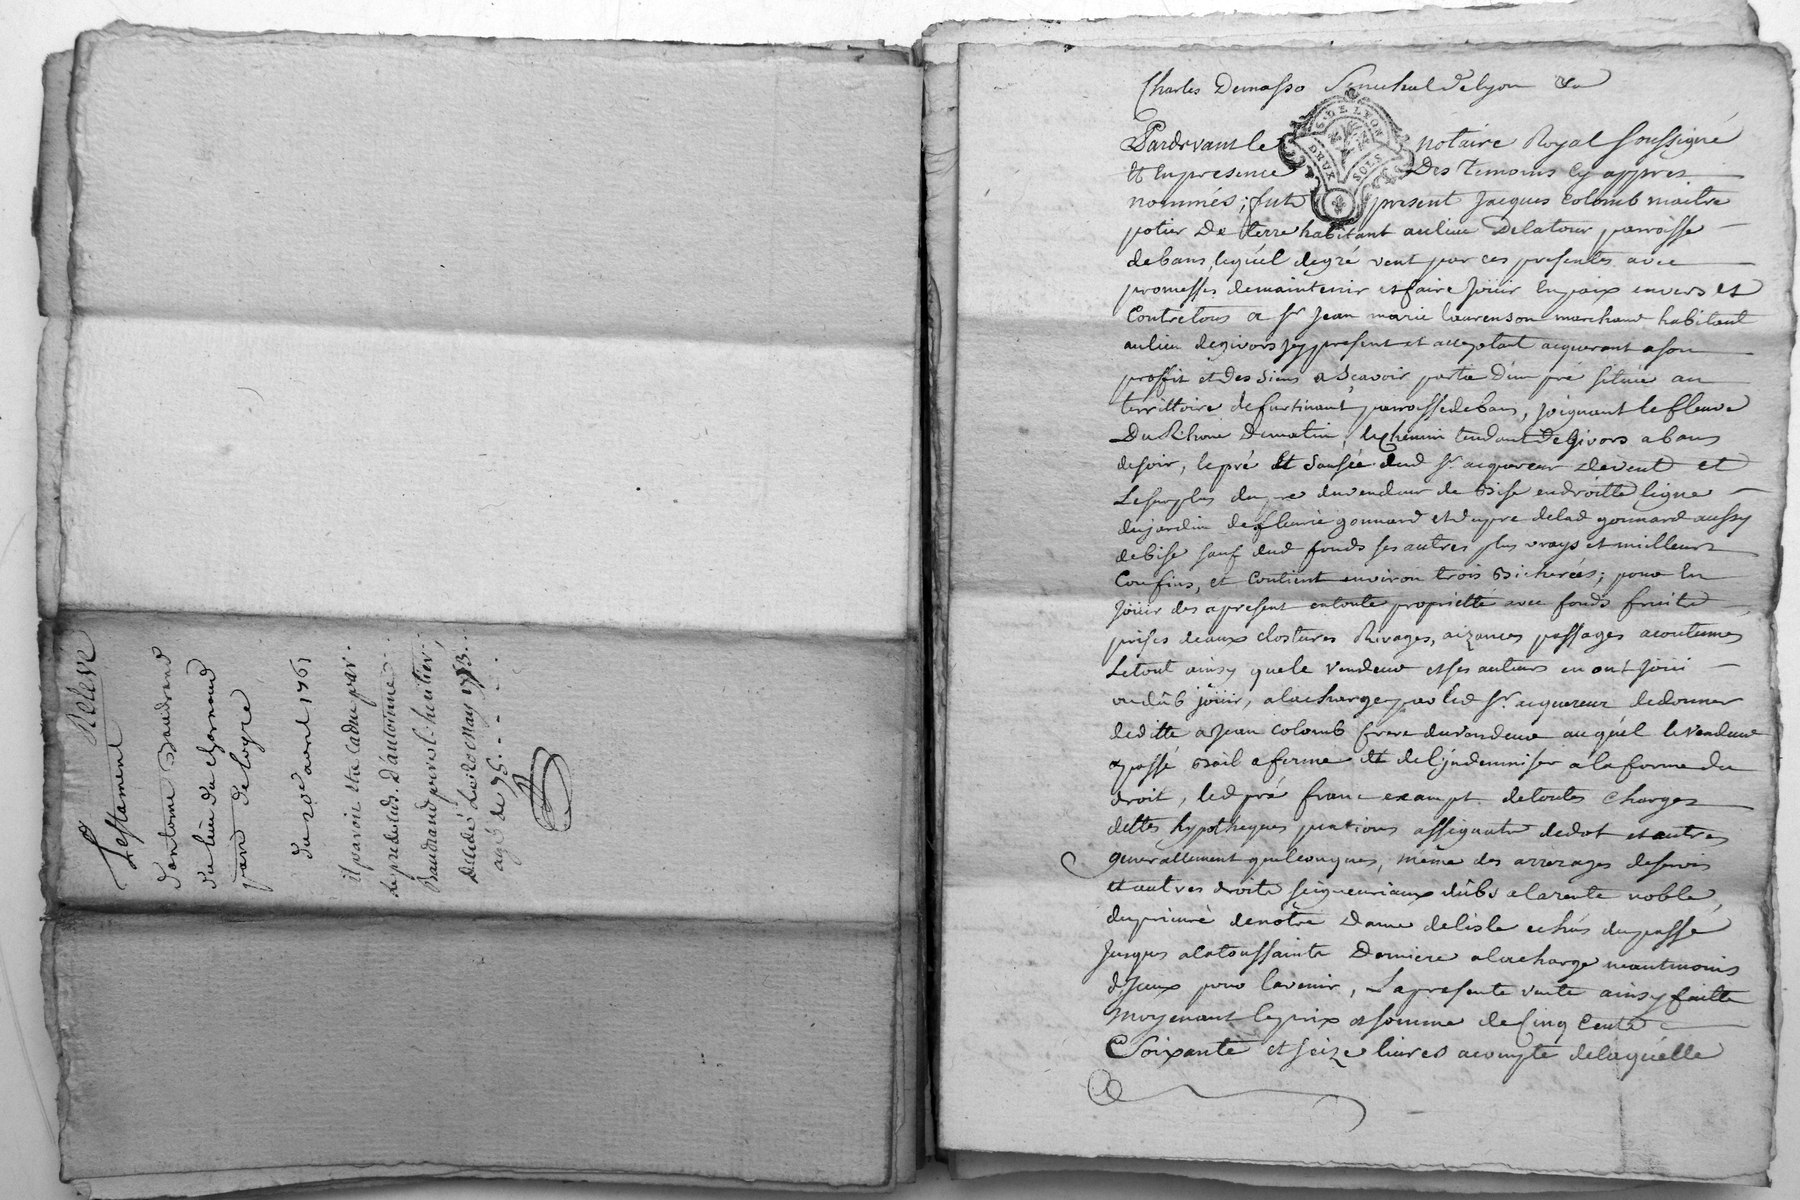 Relevé
Testament
d'antoine Baudrand
du lieu du charnaud
de loyre
du 20e avril 1761
il paroit etre caduc par
le predeceds d'antoinne
Baudrand p. heritier
Decedé Le 10 May 1763
agé de 75
Charles Demasso Senechal de lyon &a
Pardevant le notaire Royal soussigné
Et En presence Des temoins cy appres
nommés; fut present Jacques Colomb maitre
potier De terre habitant au lieu Delatour parroisse
de bans, lequel de gré vent par ces presentes avec
promesses de maintenir et faire Joüir En paix envers et
Contre tous a sr Jean marie laurenson marchand habitant
au lieu de givors icy present et acceptant acquerant a son
proffit et des siens a Scavoir partie D'un pré scitüé au
territtoire de fortinant parroisse de bans, joignant le fleuve
Du Rhone Du matin, le chemin tendant de Givors a bans
de soir, le pré Et Saussée dud sr acquereur de vent et
Le surplus du pre du vendeur de Bise en droitte ligne
du jardin de fleurie gonnard et du pre de lad gonnard aussy
de bise sauf dud fonds ses autres plus vrays et meilleurs
Confins, et Contient environ trois Bicherées; pour En
Joüir des a present en toute proprietté avec fonds fruits
prises d'eaux clostures Rivages, aizances passages acoutumes
Le tout ainsy que le vendeur et ses auteurs en ont joüi
ou dûb joüir, a la charge par led sr. acquereur de donner
deditte a Jean Colomb frere du vendeur auquél le vendeur
a passé Bail a ferme Et de l'indemniser a la forme du
droit, led pré franc exampt de toutes charges
dettes hypotheques pentions assignats de dot et autres
generallement quelconques, même des arrerages de servis
et autres droits seigneuriaux dûbs a la rente noble
du prieuré de nôtre Dame de lisle echûs du passé
Jusques a la toussaints Derniere a la charge neantmoins
d'Iceux pour l'avenir, La presente vente ainsy faitte
moyenant le prix et somme de Cinq Cents
Soixante et seize livres a compte de laquélle
G. DE LYON
DEUX SOLS